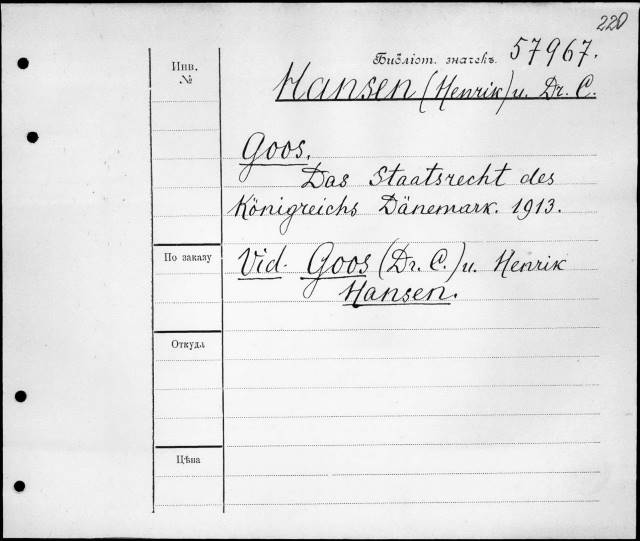 220
Инв.
№
Библіот. значекъ 57967.
Hansen (Henrik) u. Dr. C.
Goos.
Das Staatsrecht des
Königreichs Dänemark. 1913.
По заказу
Vid. Goos (Dr. C.) u. Henrik
Hansen.
Откуда
Цѣна